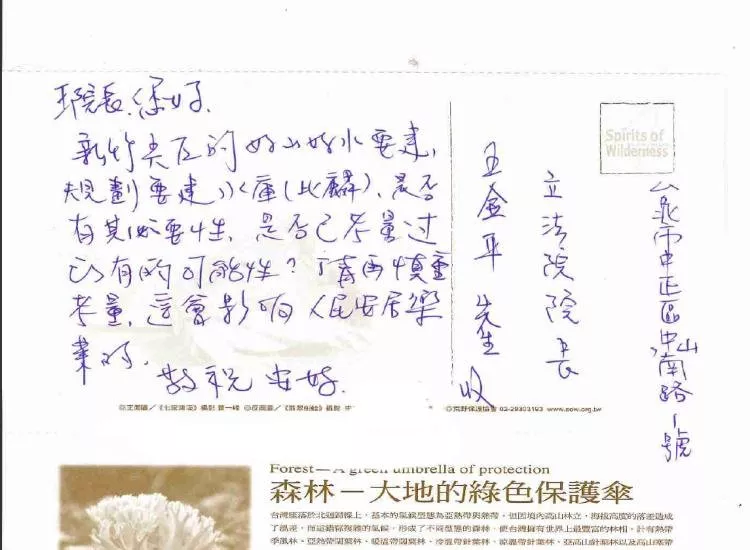 王院長,您好.
新竹尖石的好山好水要建,
規劃要建水庫(比麟),是否
有其必要性,是否已考量過
所有的可能性?請再慎重
考量,這會影响人民安居樂
業的.
敬祝 安好.
Spirits of
Wilderness
台北市中正區中山南路1號
立法院院長
王金平 先生 收
◎荒野保護協會 02-23071568 www.sow.org.tw
Forest—A green umbrella of protection
森林－大地的綠色保護傘
台灣座落於北迴歸線上,基本的氣候型態為亞熱帶與熱帶,但因境內高山林立,海拔高度的落差造成
了溫差,而這錯綜複雜的氣候,形成了不同型態的森林,使台灣擁有世界上最豐富的林相,計有熱帶
季風林、亞熱帶闊葉林、暖溫帶闊葉林、冷溫帶針葉林、涼溫帶針葉林、亞高山針葉林以及高山寒帶